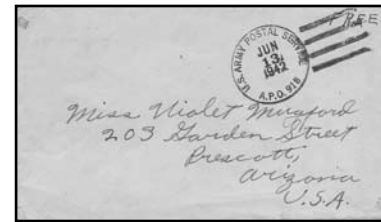 FREE
U.S. ARMY POSTAL SERVICE
JUN
13
1942
A.P.O. 918
Miss Violet Mugford
203 Garden Street
Prescott,
Arizona
U.S.A.